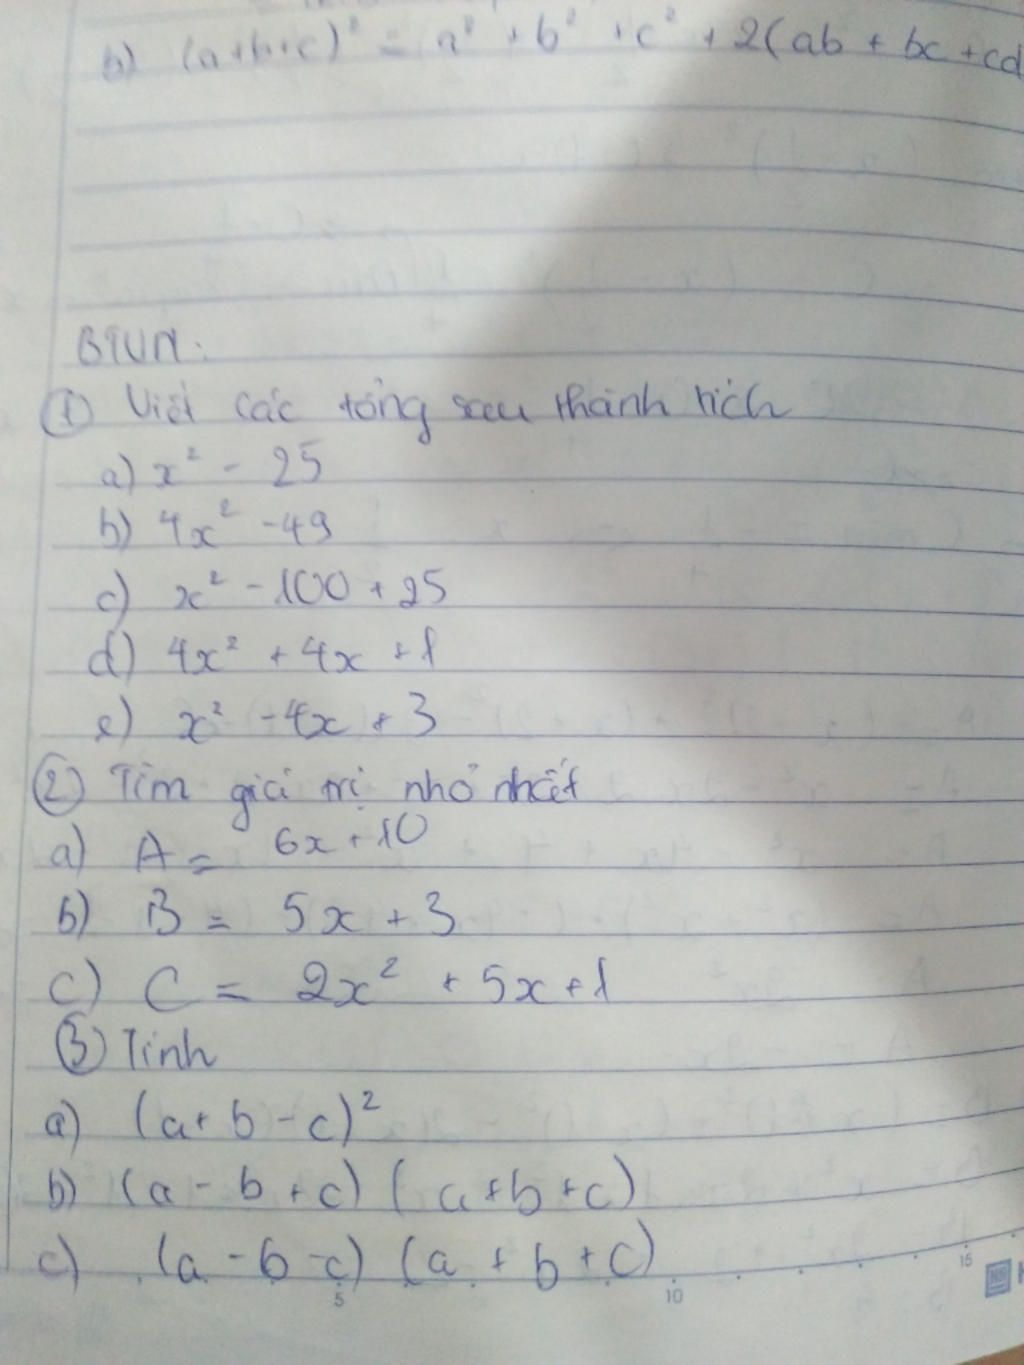 b) (a+b+c)² = a² + b² + c² + 2(ab + bc + cd
BTVN:
① Viết các tổng sau thành tích
a) x² - 25
b) 4x² - 49
c) x² - 100 + 25
d) 4x² + 4x + 1
e) x² - 4x + 3
② Tìm giá trị nhỏ nhất
a) A = 6x + 10
b) B = 5x + 3
c) C = 2x² + 5x + 1
③ Tính
a) (a + b - c)²
b) (a - b + c) (a + b + c)
c) (a - b - c) (a + b + c)
5 10 15